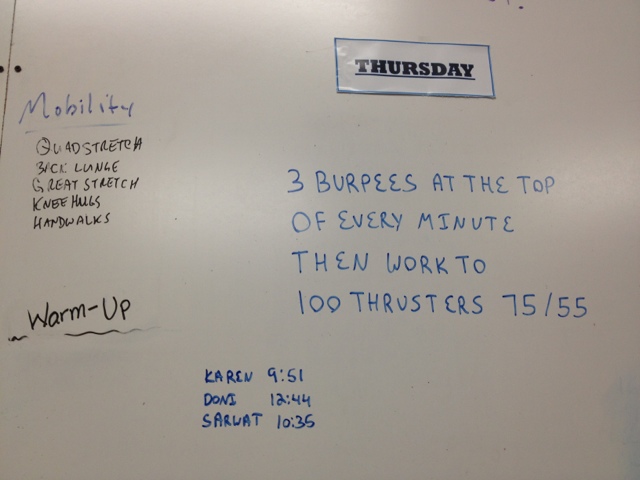 THURSDAY
Mobility
QUADSTRETCH
BACK LUNGE
GREAT STRETCH
KNEE HUGS
HANDWALKS
Warm-Up
3 BURPEES AT THE TOP
OF EVERY MINUTE
THEN WORK TO
100 THRUSTERS 75/55
KAREN 9:51
DONI 12:44
SARWAT 10:35